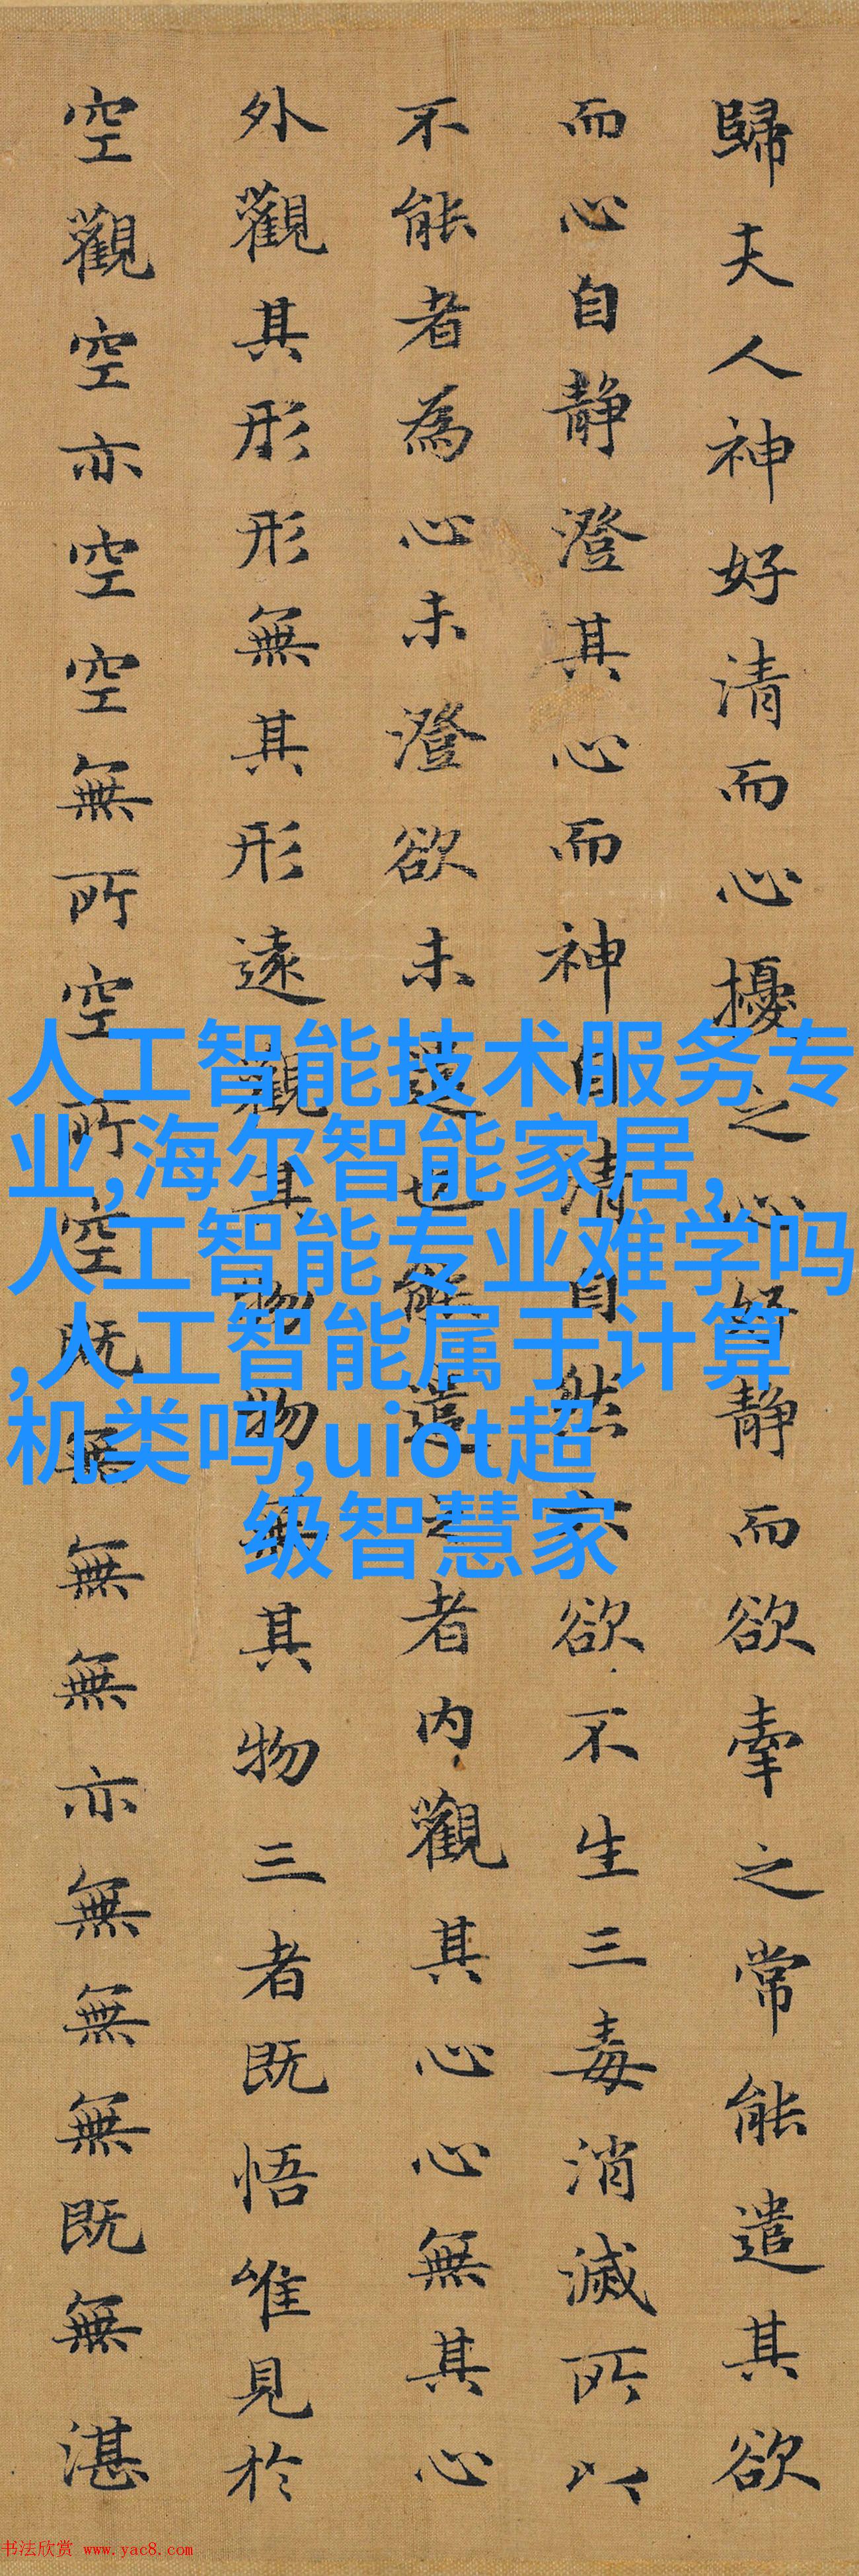 歸夫人神好清而心擾之心好静而欲牽之常能遣其欲
而心自静澄其心而神自清自然六欲不生三毒消滅所以
不能者為心未澄欲未遣也能遣之者内觀其心心無其心
外觀其形形無其形遠觀其物物無其物三者既悟唯見於
空觀空亦空空無所空所空既無無無亦無無無既無湛
人工智能技术服务专
业,海尔智能家居,
人工智能专业难学吗
,人工智能属于计算
机类吗,uiot超
级智慧家
书法欣赏 www.yac8.com